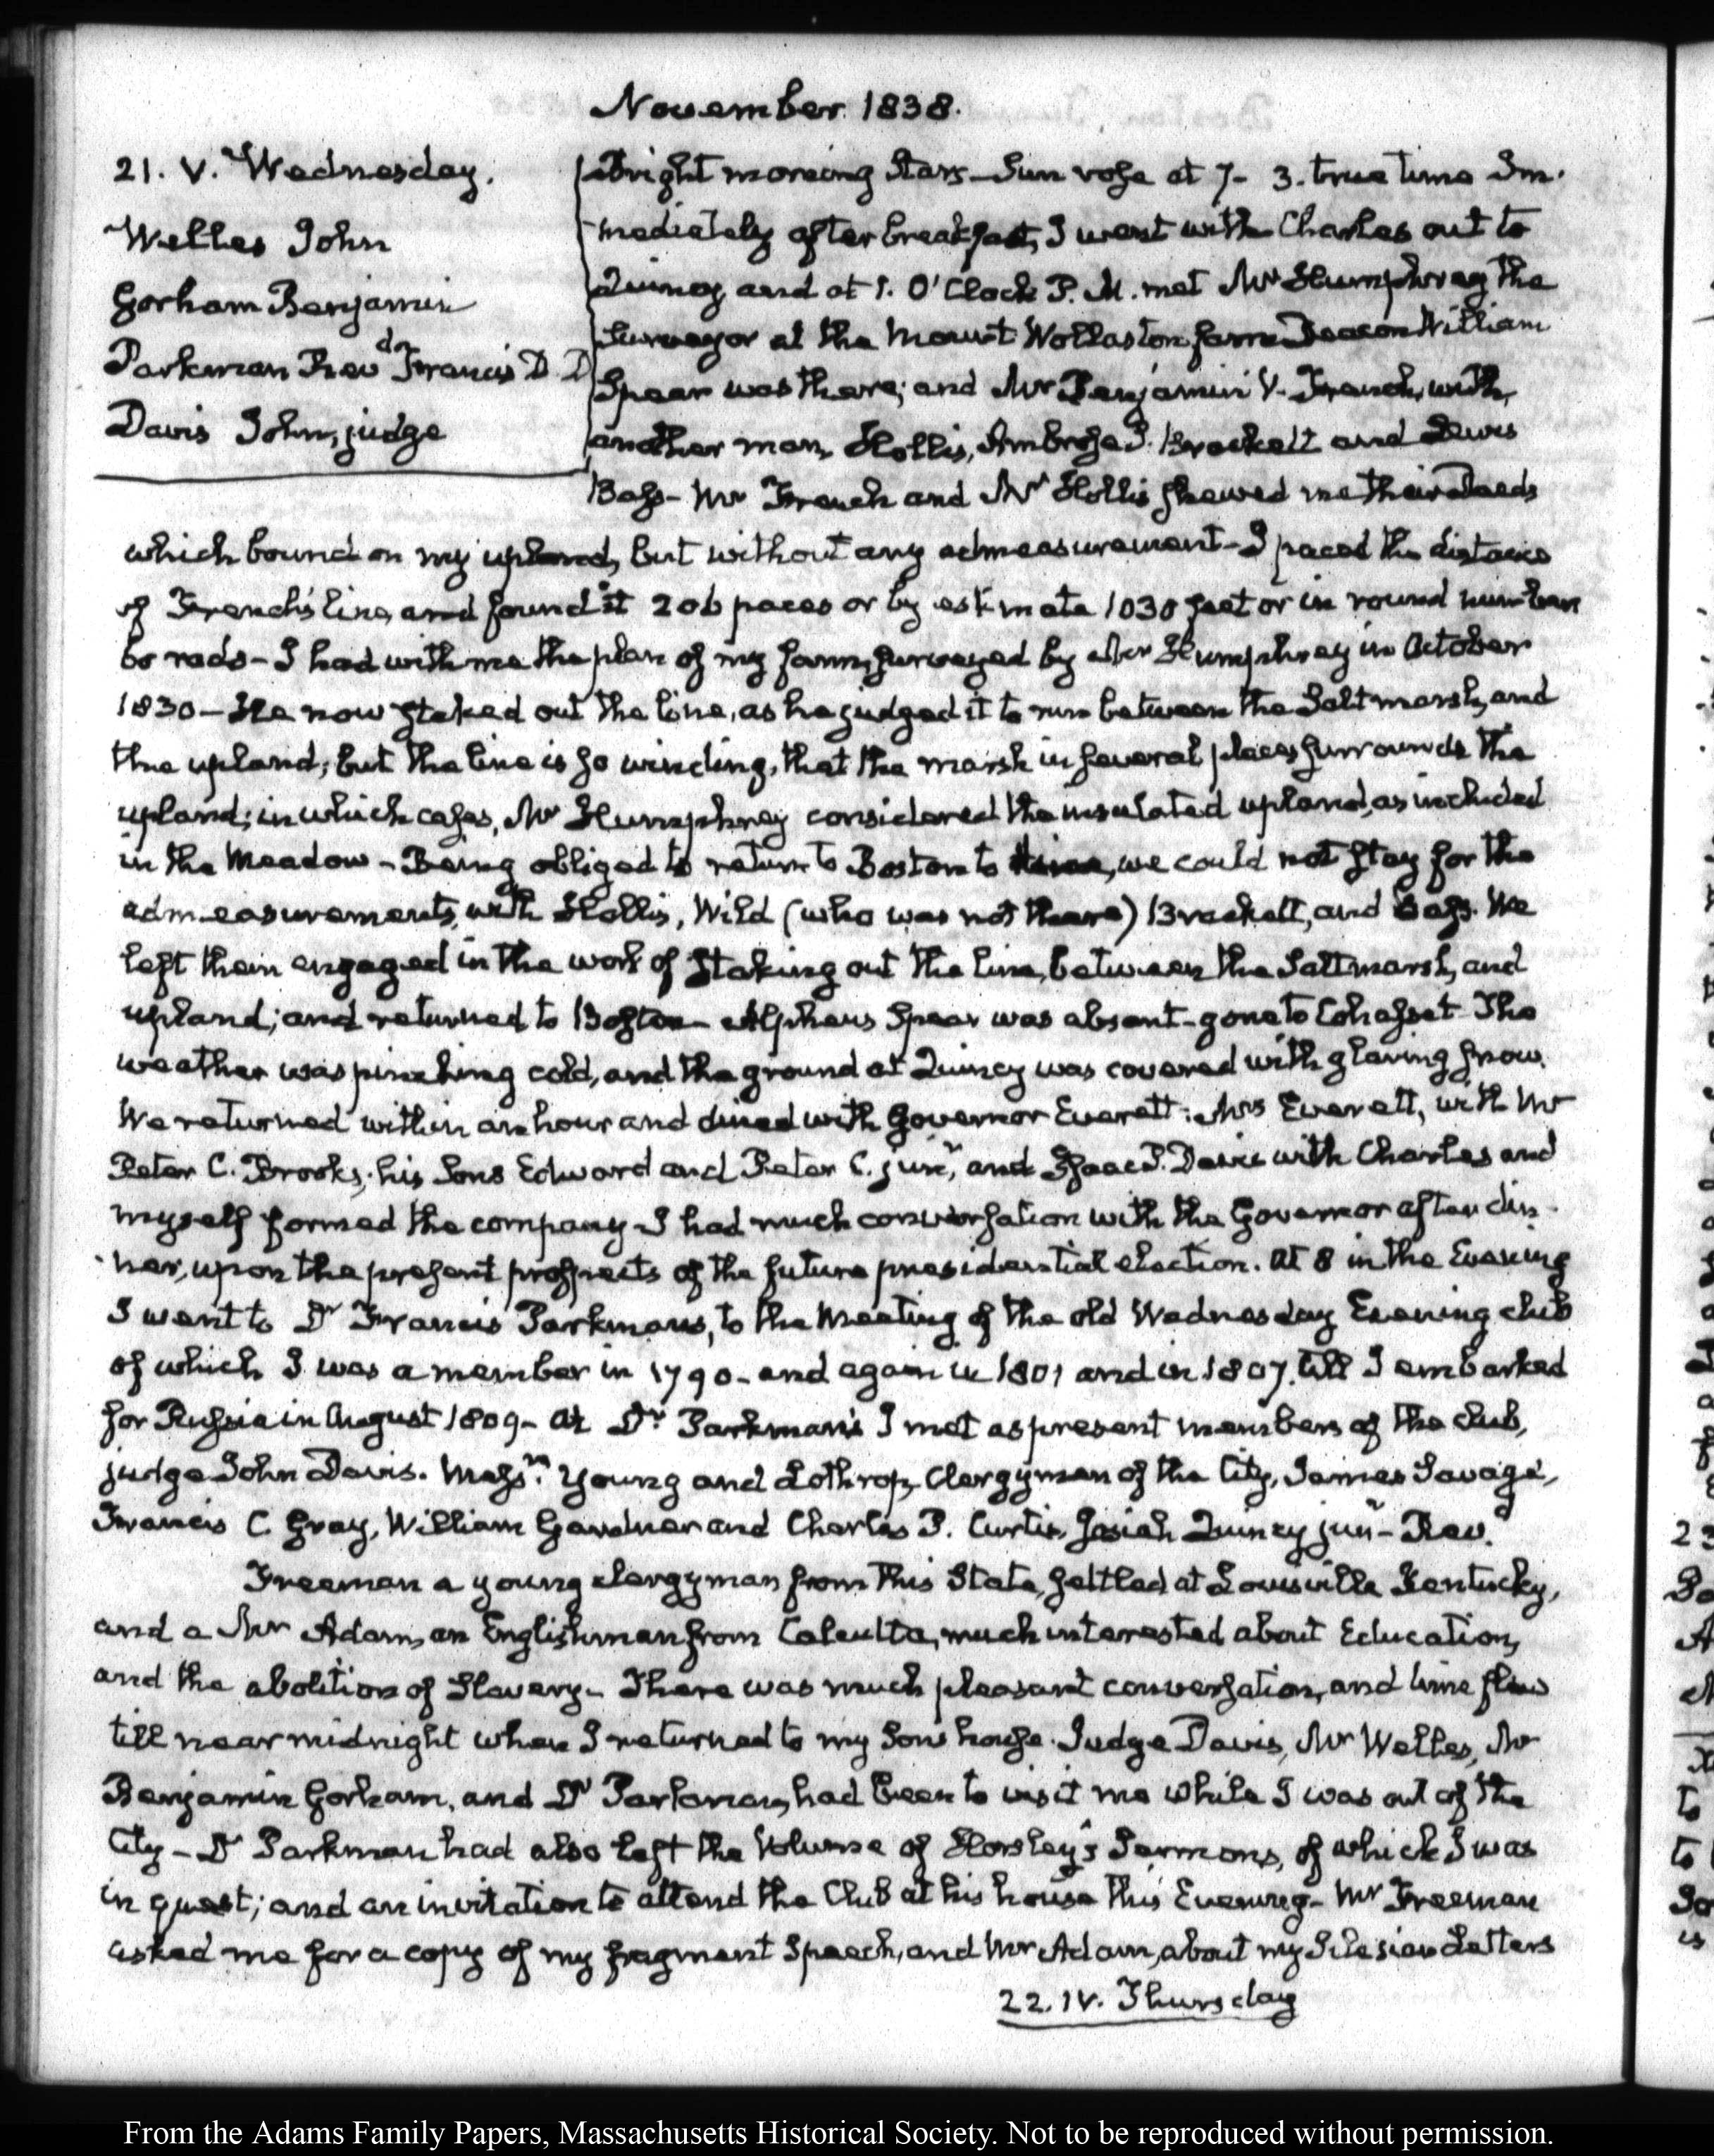 November 1838.
21. V. Wednesday.
Welles John
Gorham Benjamin
Parkman Revd Francis D. D
Davis John, judge
Bright morning Stars—Sun rose at 7- 3. true time Im-
mediately after breakfast, I went with Charles out to
Quincy and at 1. O'Clock P. M. met Mr Humphrey the
Surveyor at the Mount Wollaston farm Deacon William
Spear was there; and Mr Benjamin V. French, with
another man, Hollis, Ambrose P. Brackett and Lewis
Bass- Mr French and Mr Hollis shewed me their Deeds
which bound on my upland, but without any admeasurement- I paced the distance
of French's line, and found it 206 paces or by estimate 1030 feet or in round numbers
60 rods- I had with me the plan of my farm, surveyed by Mr Humphrey in October
1830- He now staked out the line, as he judged it to run between the Salt marsh, and
the upland; but the line is so winding, that the marsh in several places surrounds the
upland; in which cases, Mr Humphrey considered the insulated upland, as included
in the Meadow- Being obliged to return to Boston to dine, we could not stay for the
admeasurements, with Hollis, Wild (who was not there) Brackett, and Bass. We
left them engaged in the work of Staking out the line, between the Salt marsh, and
upland; and returned to Boston- Alpheus Spear was absent- gone to Cohasset- The
weather was pinching cold, and the ground at Quincy was covered with glaring snow.
We returned within an hour and dined with Governor Everett: Mrs Everett, with Mr
Peter C. Brooks, his Sons Edward and Peter C. junr, and Isaac P. Davis with Charles and
myself formed the company- I had much conversation with the Governor after din-
ner, upon the present prospects of the future presidential election. At 8 in the Evening
I went to Dr Francis Parkmans, to the Meeting of the old Wednesday Evening club
of which I was a member in 1790- and again in 1801 and in 1807. till I embarked
for Russia in August 1809- At Dr Parkman's I met as present members of the club,
judge John Davis. Messrs Young and Lothrop, Clergymen of the City, James Savage,
Francis C. Gray, William Gardner and Charles P. Curtis, Josiah Quincy junr- Revd
Freeman a young clergyman from this State, settled at Louisville Kentucky,
and a Mr Adam, an Englishman from Calcutta, much interested about Education,
and the abolition of Slavery- There was much pleasant conversation, and time flew
till near midnight when I returned to my Sons house. Judge Davis, Mr Welles, Mr
Benjamin Gorham, and Dr Parkman, had been to visit me while I was out of the
City- Dr Parkman had also left the Volume of Horsley's Sermons, of which I was
in quest; and an invitation to attend the Club at his house this Evening- Mr Freeman
asked me for a copy of my fragment Speech, and Mr Adam, about my Silesian Letters
22. IV. Thursday
From the Adams Family Papers, Massachusetts Historical Society. Not to be reproduced without permission.